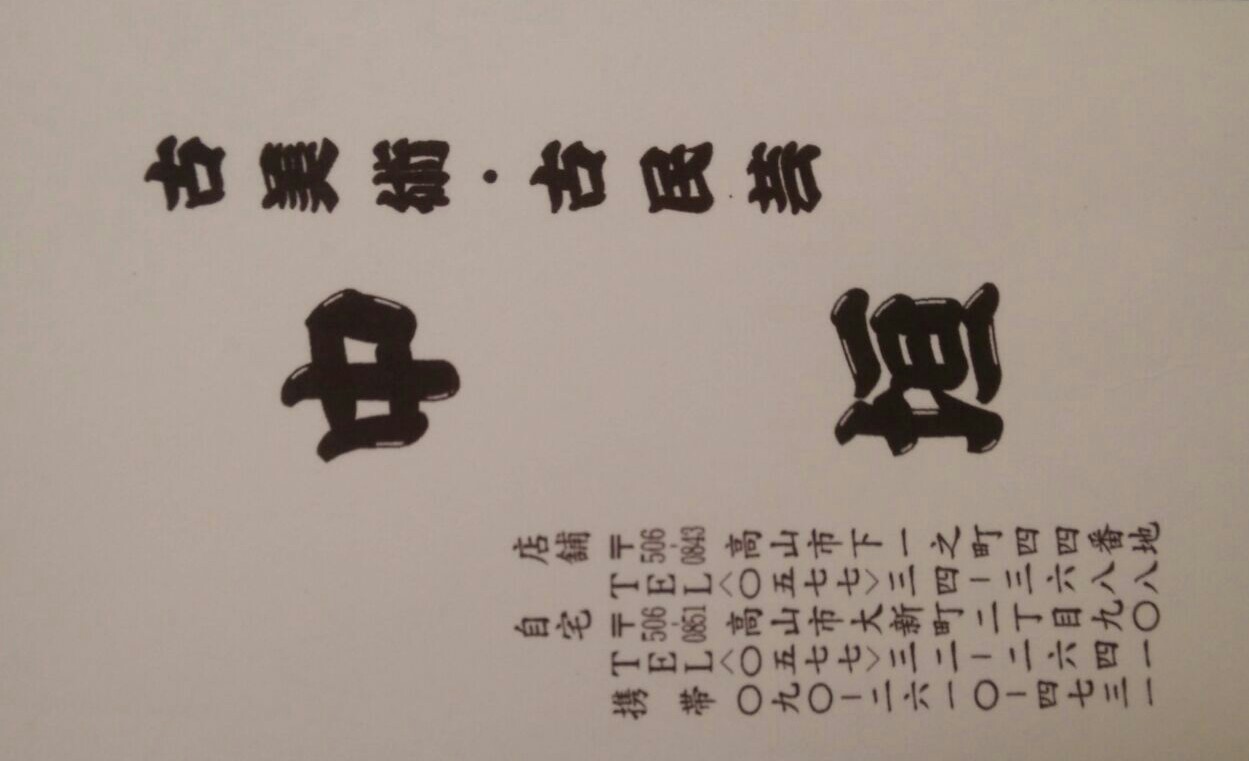 古美術・古民芸
中垣
店舗 〒506-0843 高山市下一之町四四番地
TEL〈〇五七七〉三四-三六八八
自宅 〒506-0851 高山市大新町二丁目九〇
TEL〈〇五七七〉三二-二六四一
携帯 〇九〇-二六一〇-四七三一